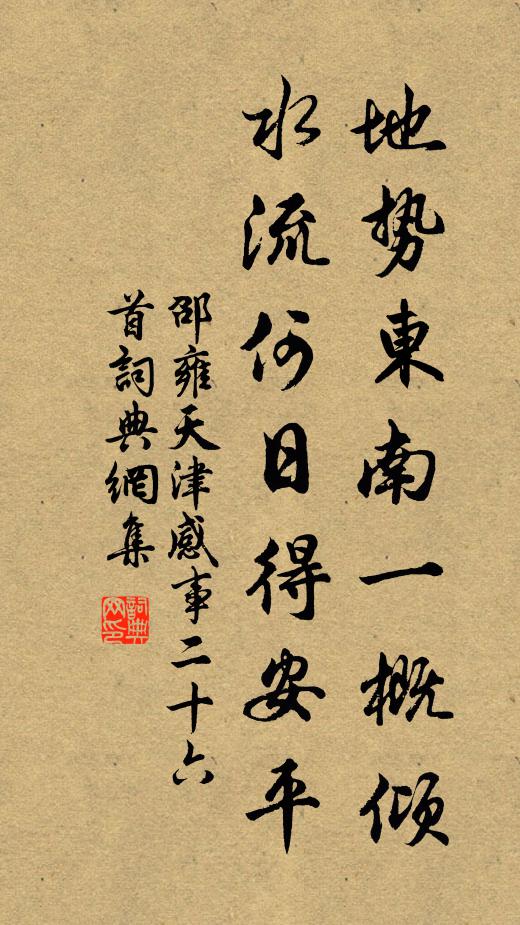 地势東南一概傾
水流何日得安平
邵雍天津感事二十六
首詞典網集
詞典网印